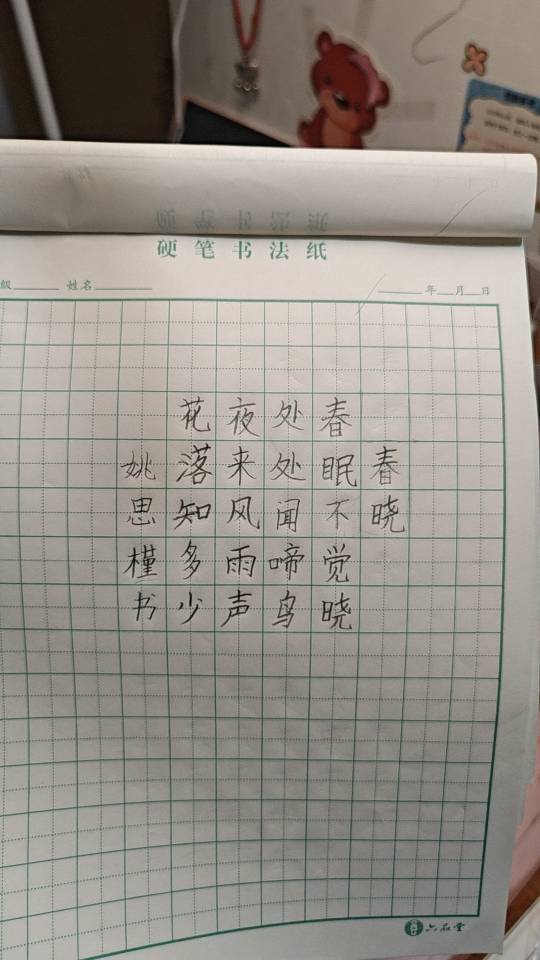 硬笔书法纸
级 姓名 年 月 日
春晓
春眠不觉晓
处处闻啼鸟
夜来风雨声
花落知多少
姚思槿书
六品堂